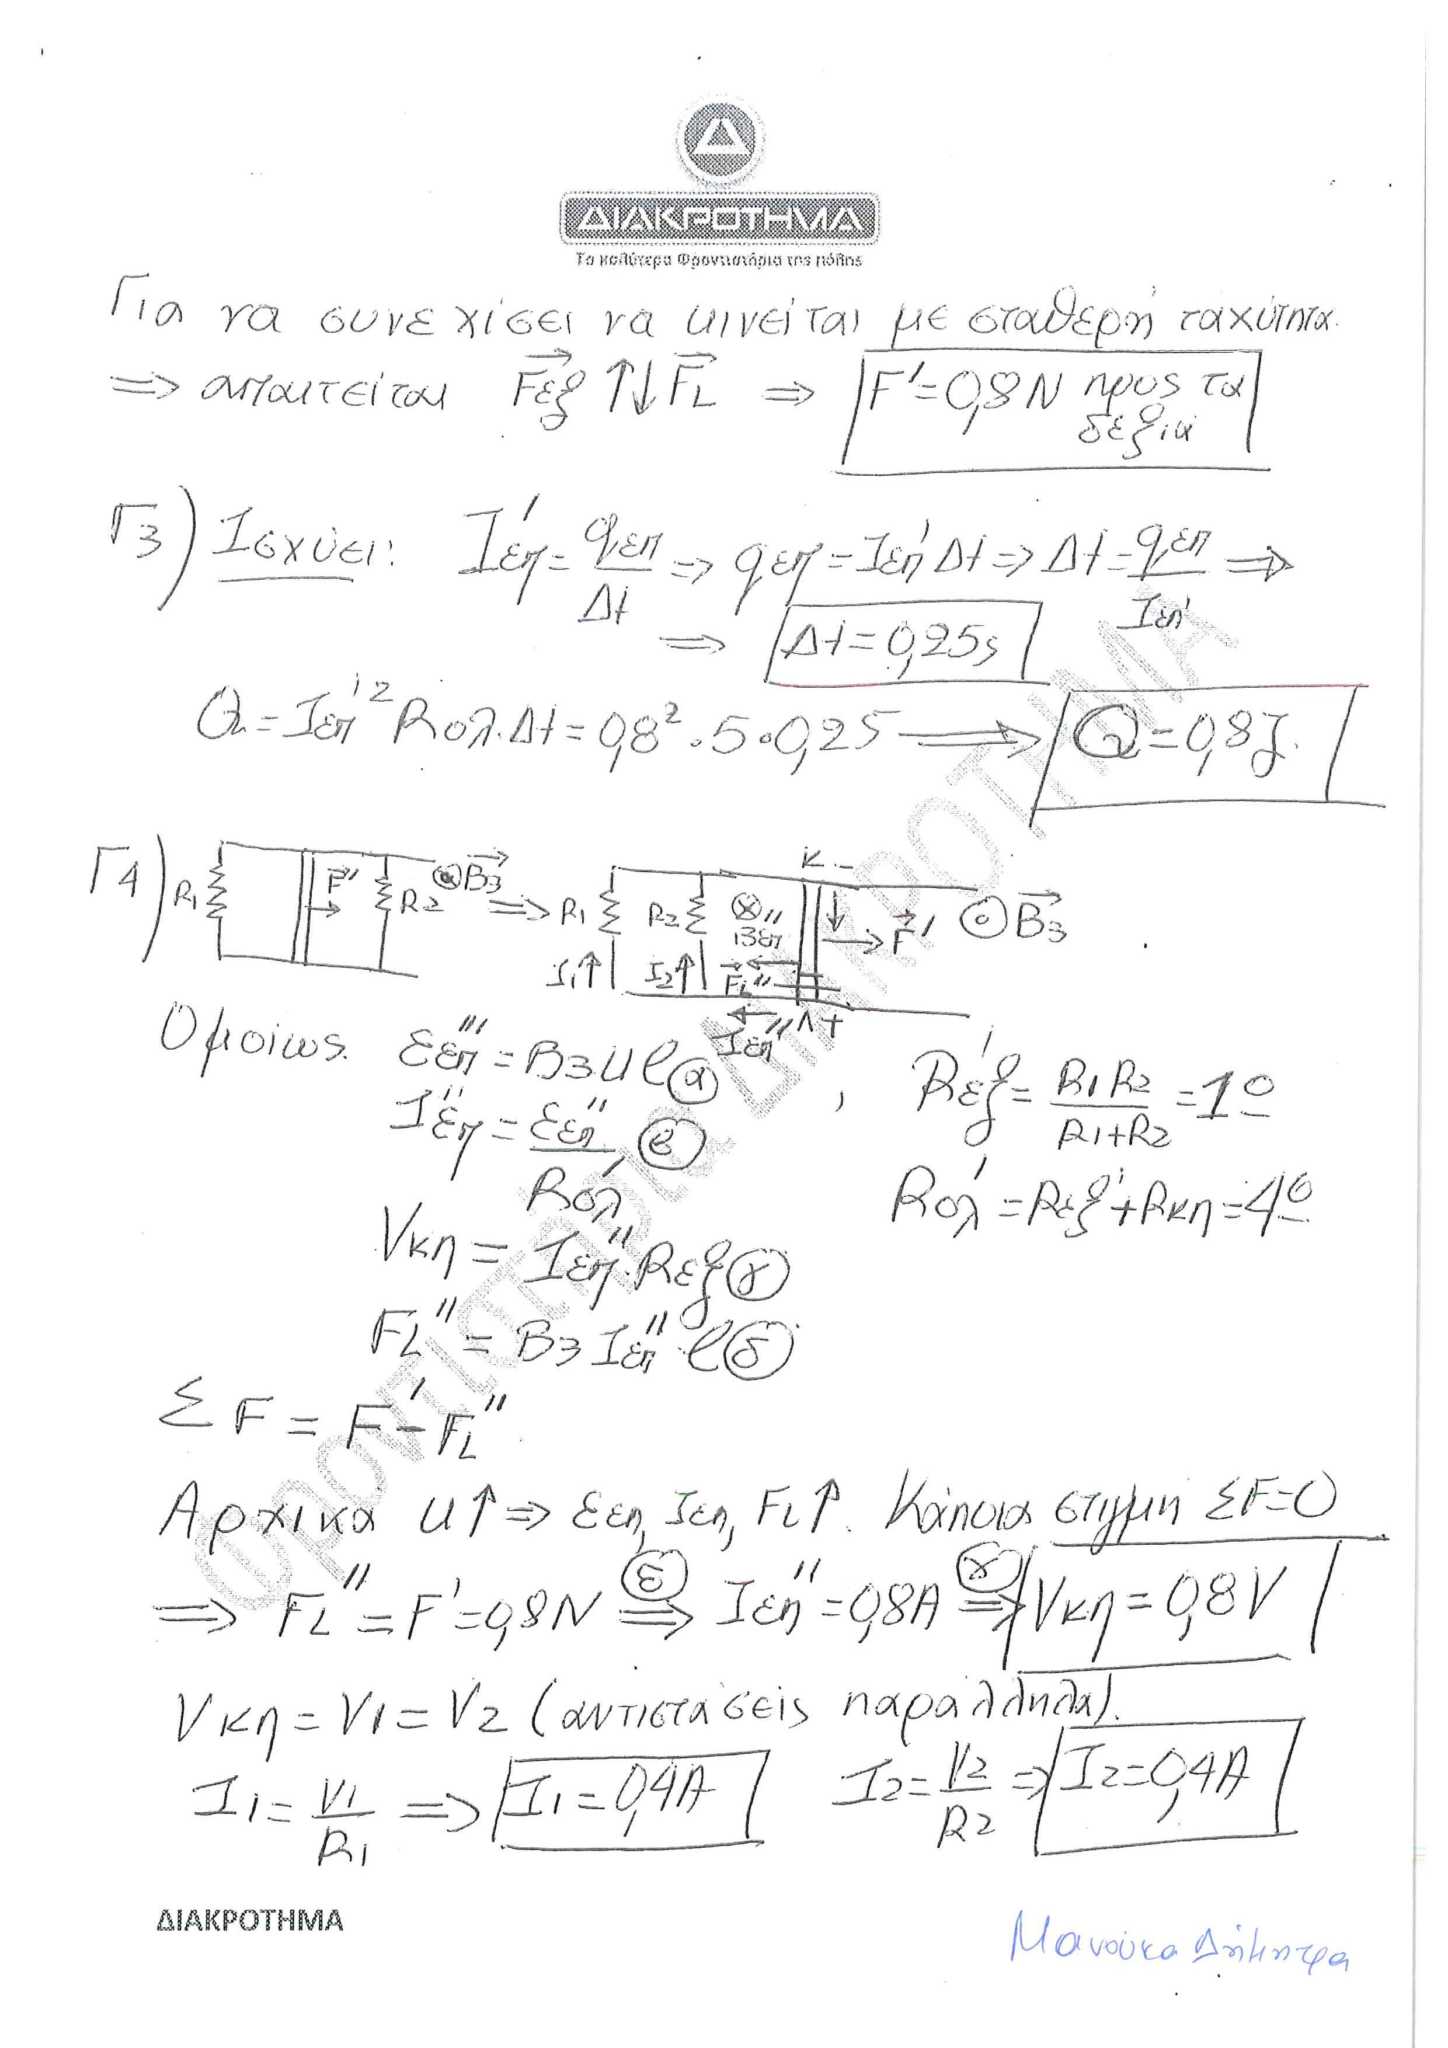 ΔΙΑΚΡΟΤΗΜΑ
Τα καλύτερα Φροντιστήρια της πόλης
Για να συνεχίσει να κινείται με σταθερή ταχύτητα.
⇒ απαιτείται F⃗εξ ↑↓ F⃗L ⇒ F' = 0,8N προς τα δεξιά
Γ3) Ισχύει: Iεπ' = qεπ/Δt ⇒ qεπ = Iεπ' Δt ⇒ Δt = qεπ/Iεπ' ⇒
⇒ Δt = 0,25s
Q = Iεπ'² Rολ. Δt = 0,8² · 5 · 0,25 ⟹ Q = 0,8J.
Γ4) R1 F⃗' R2 ⊙ B⃗3 ⇒ R1 R2 ⊗ Bεπ'' K - F⃗' ⊙ B⃗3
I1 ↑ I2 ↑ F⃗L''
Iεπ'' Λ +
Ομοίως. Eεπ''' = B3 u l (α) , Rεξ' = R1R2/R1+R2 = 1Ω
Iεπ'' = Eεπ''/Rολ' (β)
Rολ' = Rεξ' + Rκη = 4Ω
Vκη = Iεπ''. Rεξ (γ)
FL'' = B3 Iεπ''. l (δ)
ΣF = F' - FL''
Αρχικά u↑ ⇒ Eεπ, Iεπ, FL↑. Κάποια στιγμή ΣF=0
⇒ FL'' = F' = 0,8N (δ)⇒ Iεπ'' = 0,8A (γ)⇒ Vκη = 0,8V
Vκη = V1 = V2 (αντιστάσεις παράλληλα).
I1 = V1/R1 ⇒ I1 = 0,4A I2 = V2/R2 ⇒ I2 = 0,4A
ΔΙΑΚΡΟΤΗΜΑ
Μανούκα Δήμητρα
Φροντιστήρια ΔΙΑΚΡΟΤΗΜΑ